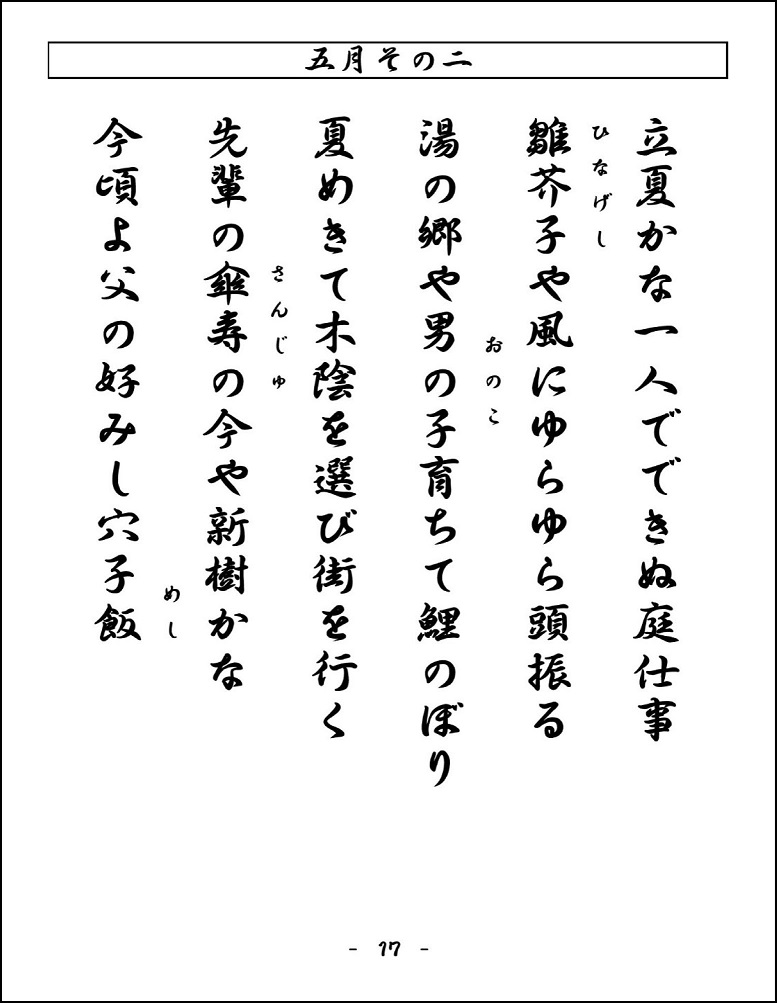 五月その二
立夏かな一人でできぬ庭仕事
ひなげし
雛芥子や風にゆらゆら頭振る
おのこ
湯の郷や男の子育ちて鯉のぼり
夏めきて木陰を選び街を行く
さんじゅ
先輩の傘寿の今や新樹かな
めし
今頃よ父の好みし穴子飯
- 17 -